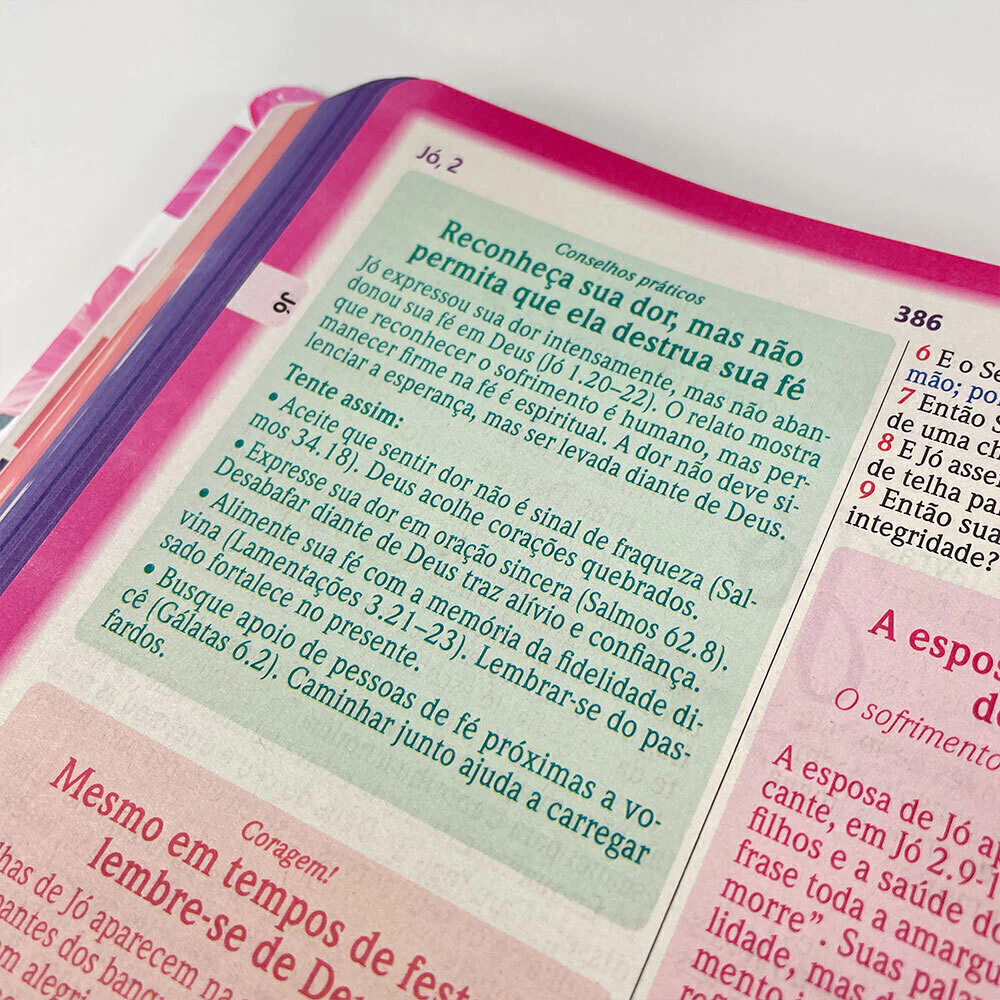 Jó, 2
386
Jó
Conselhos práticos
Reconheça sua dor, mas não
permita que ela destrua sua fé
Jó expressou sua dor intensamente, mas não aban-
donou sua fé em Deus (Jó 1.20–22). O relato mostra
que reconhecer o sofrimento é humano, mas per-
manecer firme na fé é espiritual. A dor não deve si-
lenciar a esperança, mas ser levada diante de Deus.
Tente assim:
• Aceite que sentir dor não é sinal de fraqueza (Sal-
mos 34.18). Deus acolhe corações quebrados.
• Expresse sua dor em oração sincera (Salmos 62.8).
Desabafar diante de Deus traz alívio e confiança.
• Alimente sua fé com a memória da fidelidade di-
vina (Lamentações 3.21–23). Lembrar-se do pas-
sado fortalece no presente.
• Busque apoio de pessoas de fé próximas a vo-
cê (Gálatas 6.2). Caminhar junto ajuda a carregar
fardos.
Coragem!
Mesmo em tempos de
lembre-se de
de Jó aparecem
dos
6 E o
mão;
7 Então
de uma
8 E Jó
de telha
9 Então sua
integridade?
A
O sofrimento
A esposa de Jó
em Jó 2.9-
filhos e a saúde
frase toda a
morre”. Suas
mas